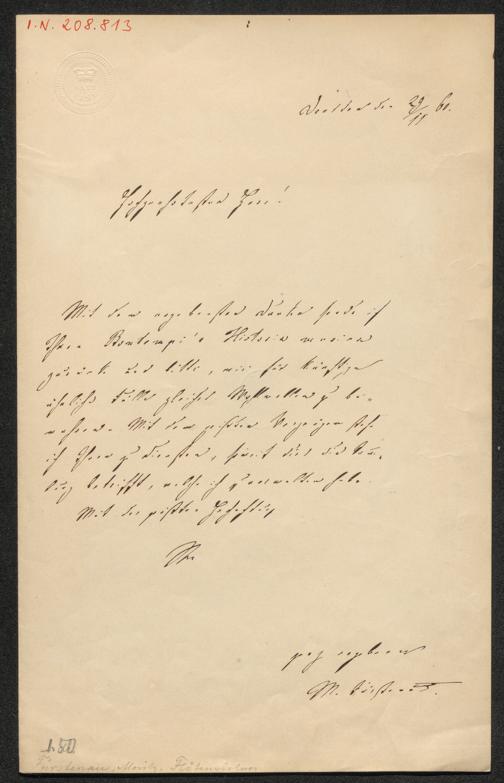 I.N. 208.813
Dresden den 29/11 60.
Hochgeehrtester Herr!
Mit dem ergebensten Danke sende ich
Ihnen Bontempi's Historia musica
zurück und bitte, mir für künftige
ähnliche Fälle gleiches Wohlwollen zu be-
wahren. Mit dem größten Vergnügen stehe
ich Ihnen zu Diensten, soweit dies die Samm-
lung betrifft, welche ich zu verwalten habe.
Mit der größten Hochachtung
Ihr
ganz ergebener
M. Fürstenau.
180
Fürstenau, Moritz, Flötenvirtuos